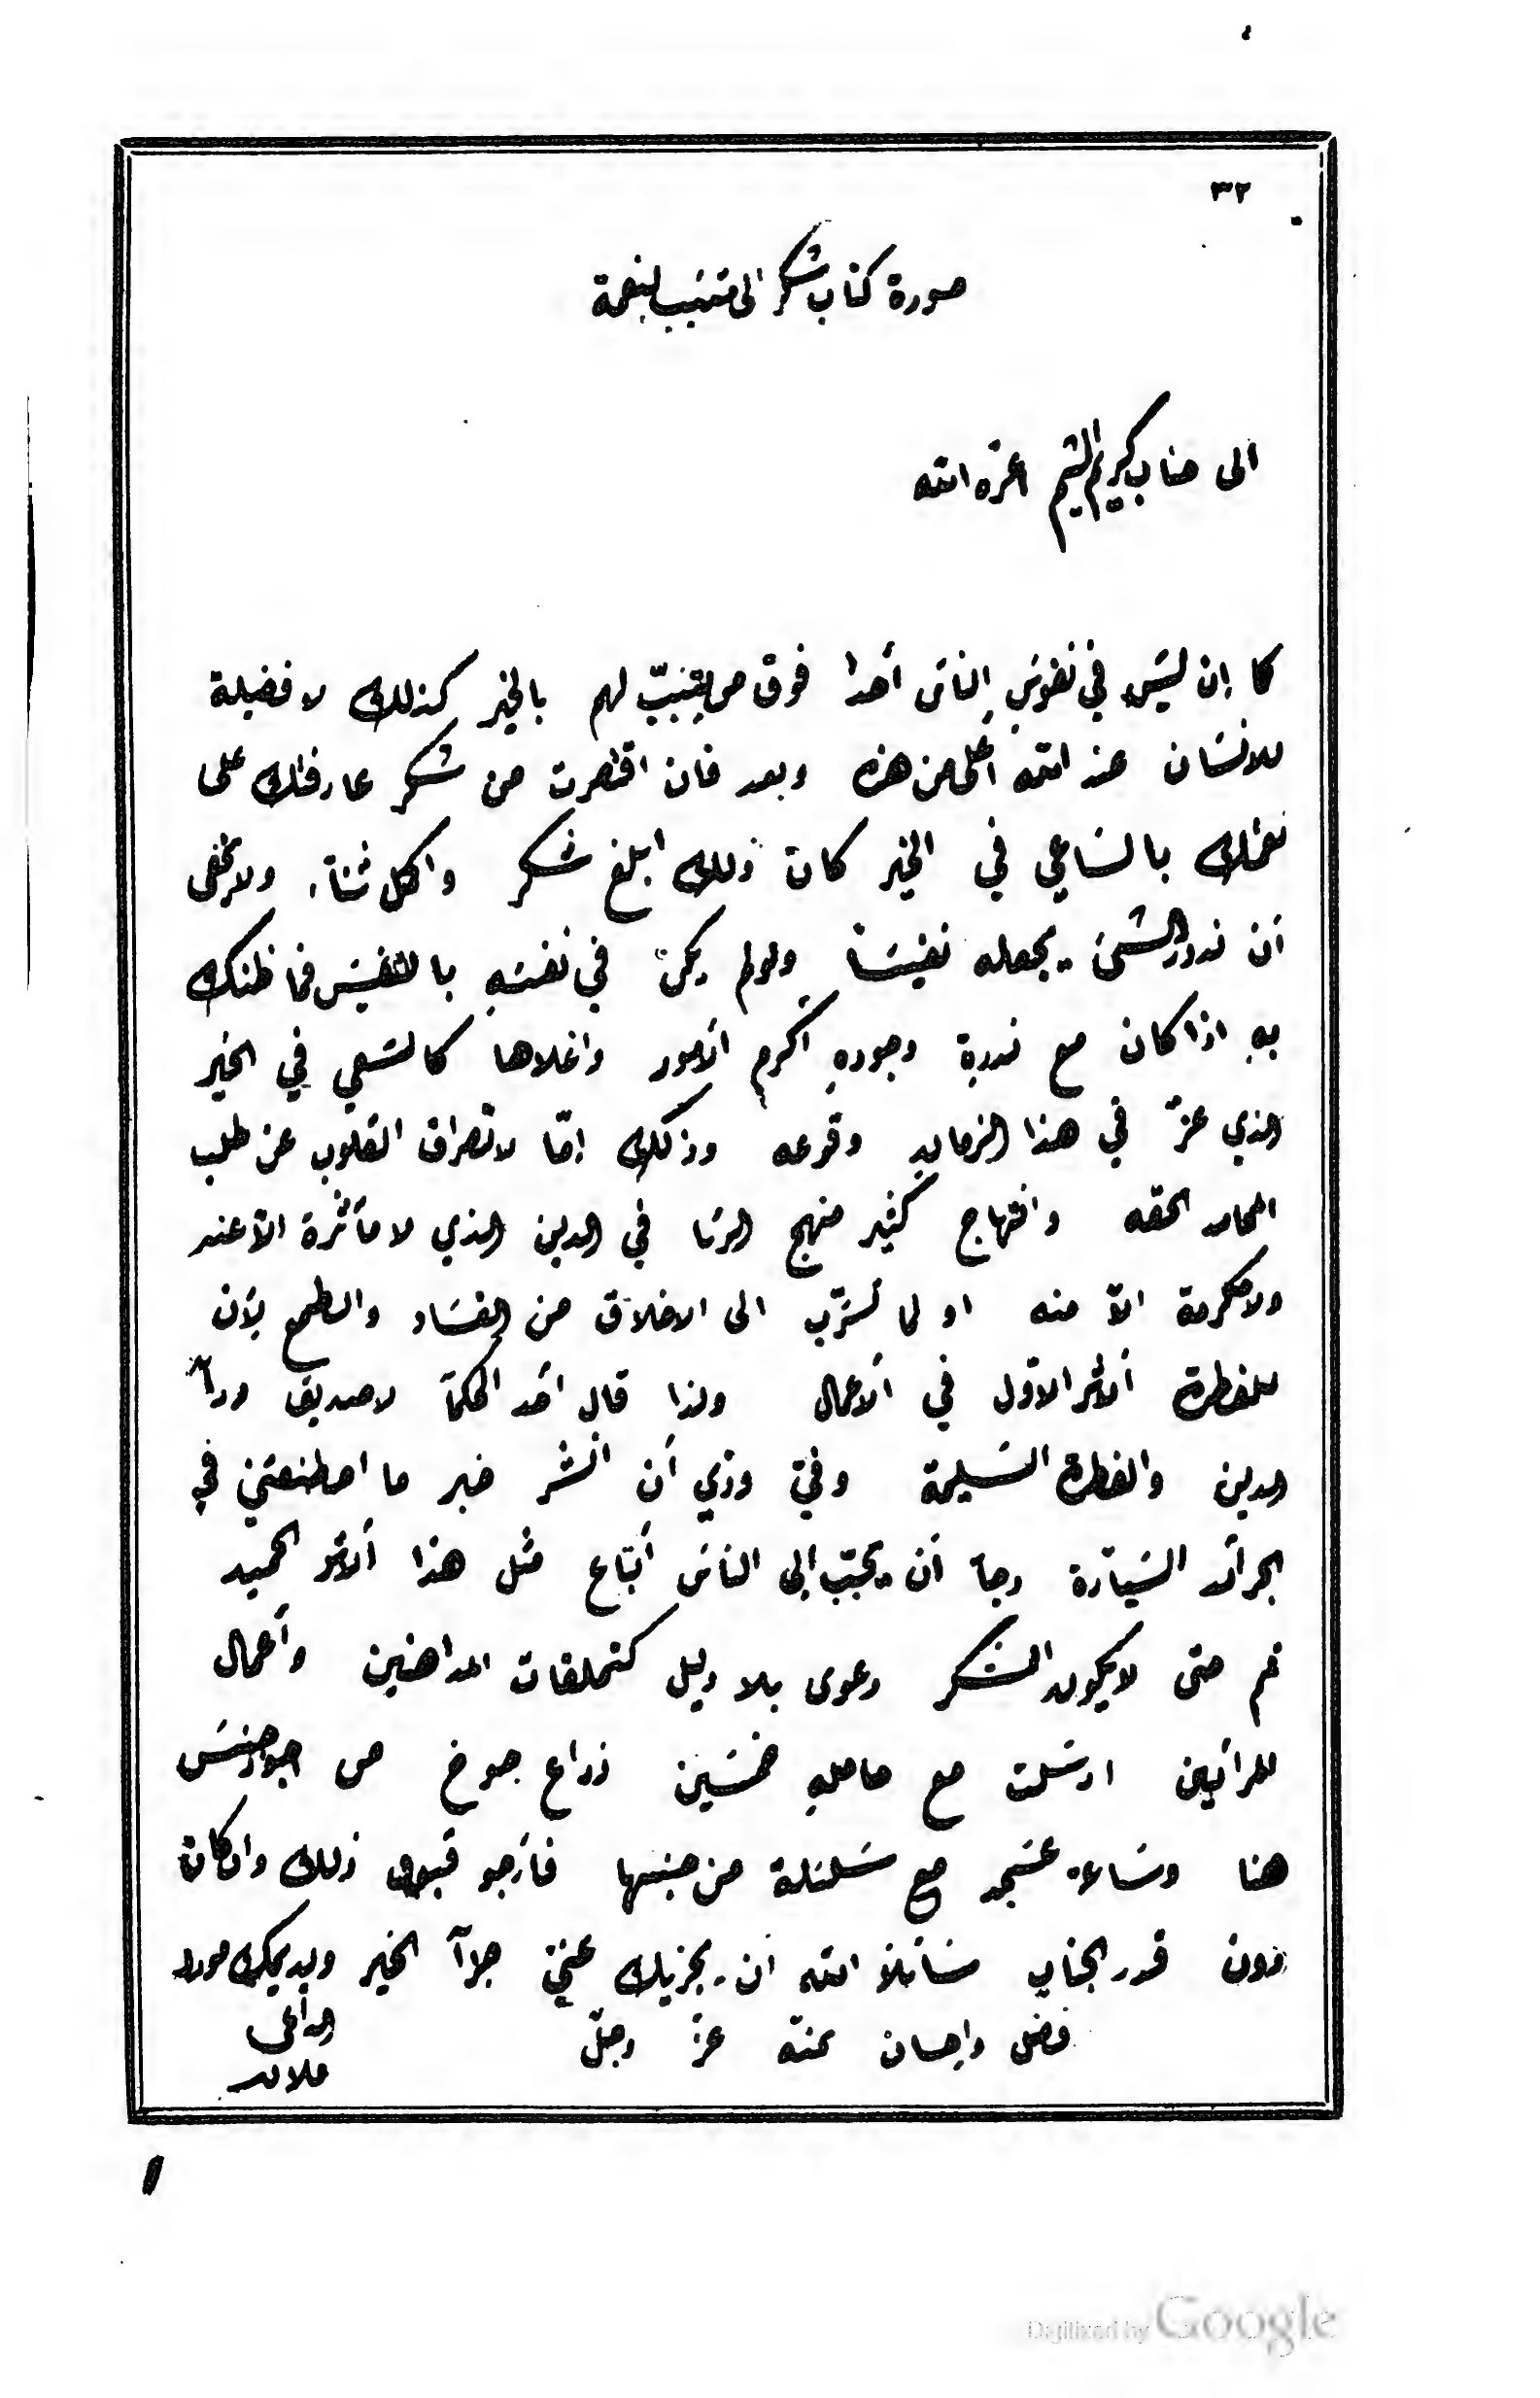 ٣٢
صورة كتاب شكر الى متسبب بنعمة
الى جناب كريم الشيم اعزه الله
كما إن ليس في نفوس الناس أحدا فوق من يتسبب لهم بالخير كذلك لا فضيلة
للانسان عند الله أعلى من هذه وبعد فان اقتصرت من شكر عارفتك على
نعتك بالساعي في الخير كان ذلك ابلغ شكر واكمل ثناء ولا يخفى
أن ندور الشئ يجعله نفيسا ولو لم يكن في نفسه بالنفيس فما ظنك
به اذا كان مع ندرة وجوده اكرم الأمور واغلاها كالسعي في الخير
الذي عز في هذا الزمان وقوعه وذلك إمّا لانصراف القلوب عن طلب
المحامد الحقه وانتهاج كثير منهج الريا في الدين الذي لا مأثرة الّا عنده
ولا مكرمة الّا منه او لما تسرّب الى الاخلاق من الفساد والطمع لأن
للفطرة الأثر الاوّل في الأعمال ولذا قال أحد الحكمآ لا صديق ورآء
الدين والفطرة السليمة وفي ودّي أن انشر خبر ما اصطنعتني في
الجرائد السيّارة رجآ أن يحبّب إلى الناس أتباع مثل هذا الأثر الحميد
ثم حتى لا يكون الشكر دعوى بلا دليل كتملقات المداهنين وأعمال
المرائين ارسلت مع حامله خمسين ذراع جوخ من اجود جنس
هنا وساعة عسجد مع سلسلة من جنسها فأرجو قبول ذلك وان كان
دون قدر الجناب سائلا الله أن يجزيك عنّي جزآ الخير ويديمك مورد
فضل وإحسان بمنّه عزّ وجلّ
الداعي
فلان
Digitized by Google